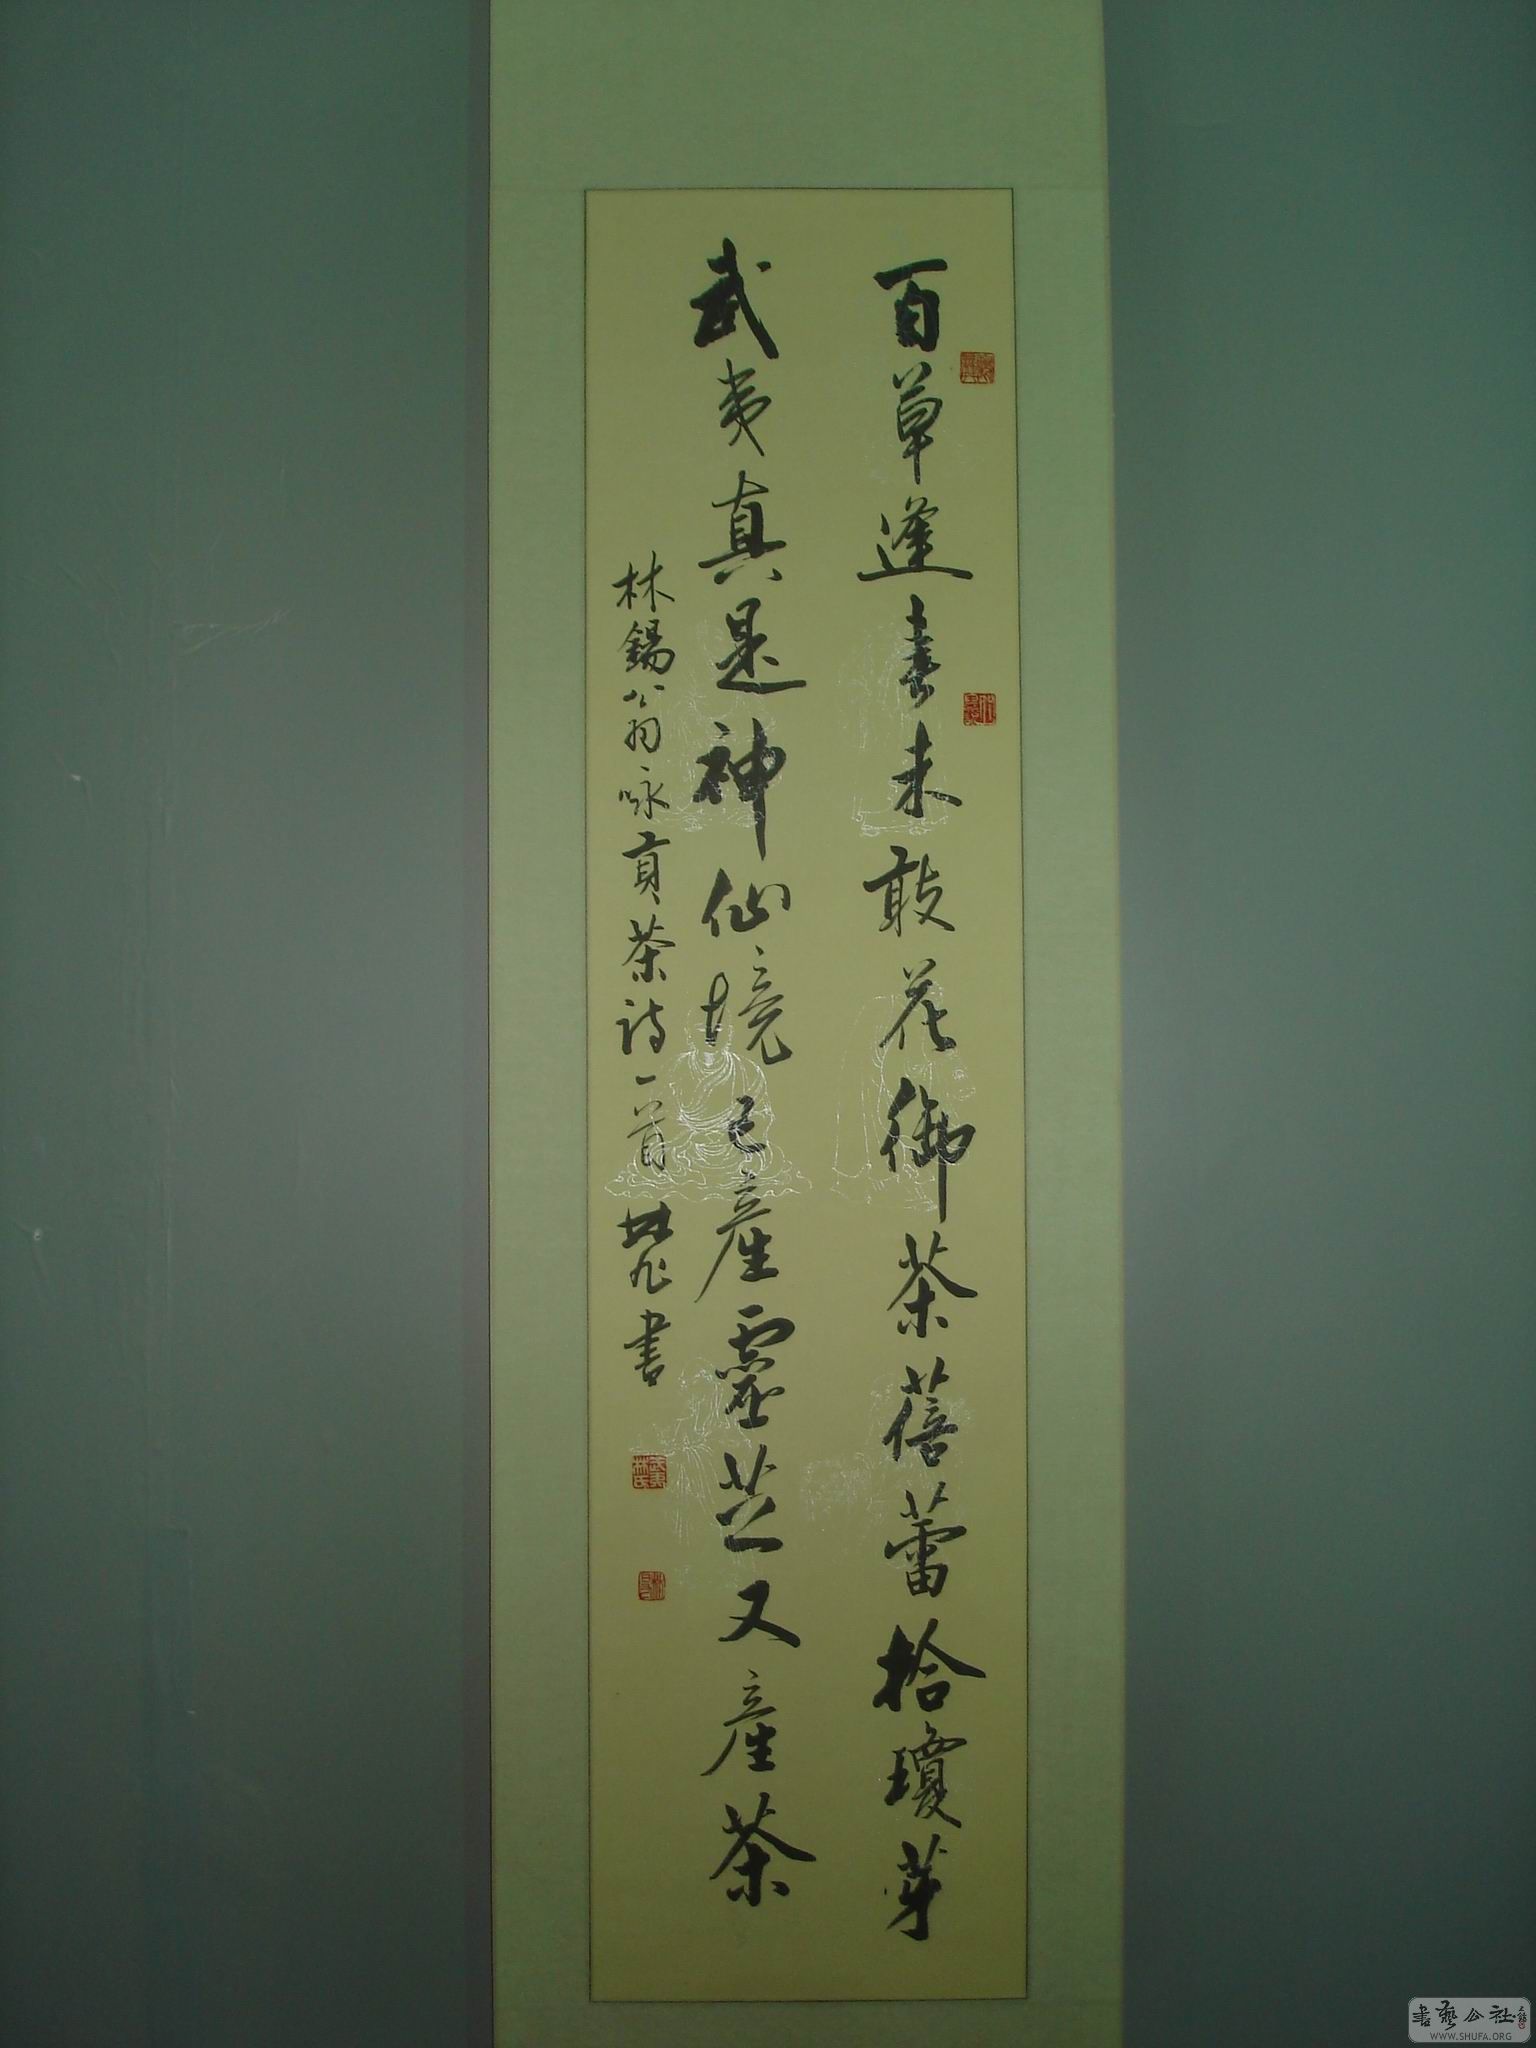 百草逢春未敢花御茶蓓蕾拾瓊芽
武夷真是神仙境已產靈芝又產茶
林錫翁咏貢茶詩一首 書
武夷林氏
書藝公社
WWW.SHUFA.ORG